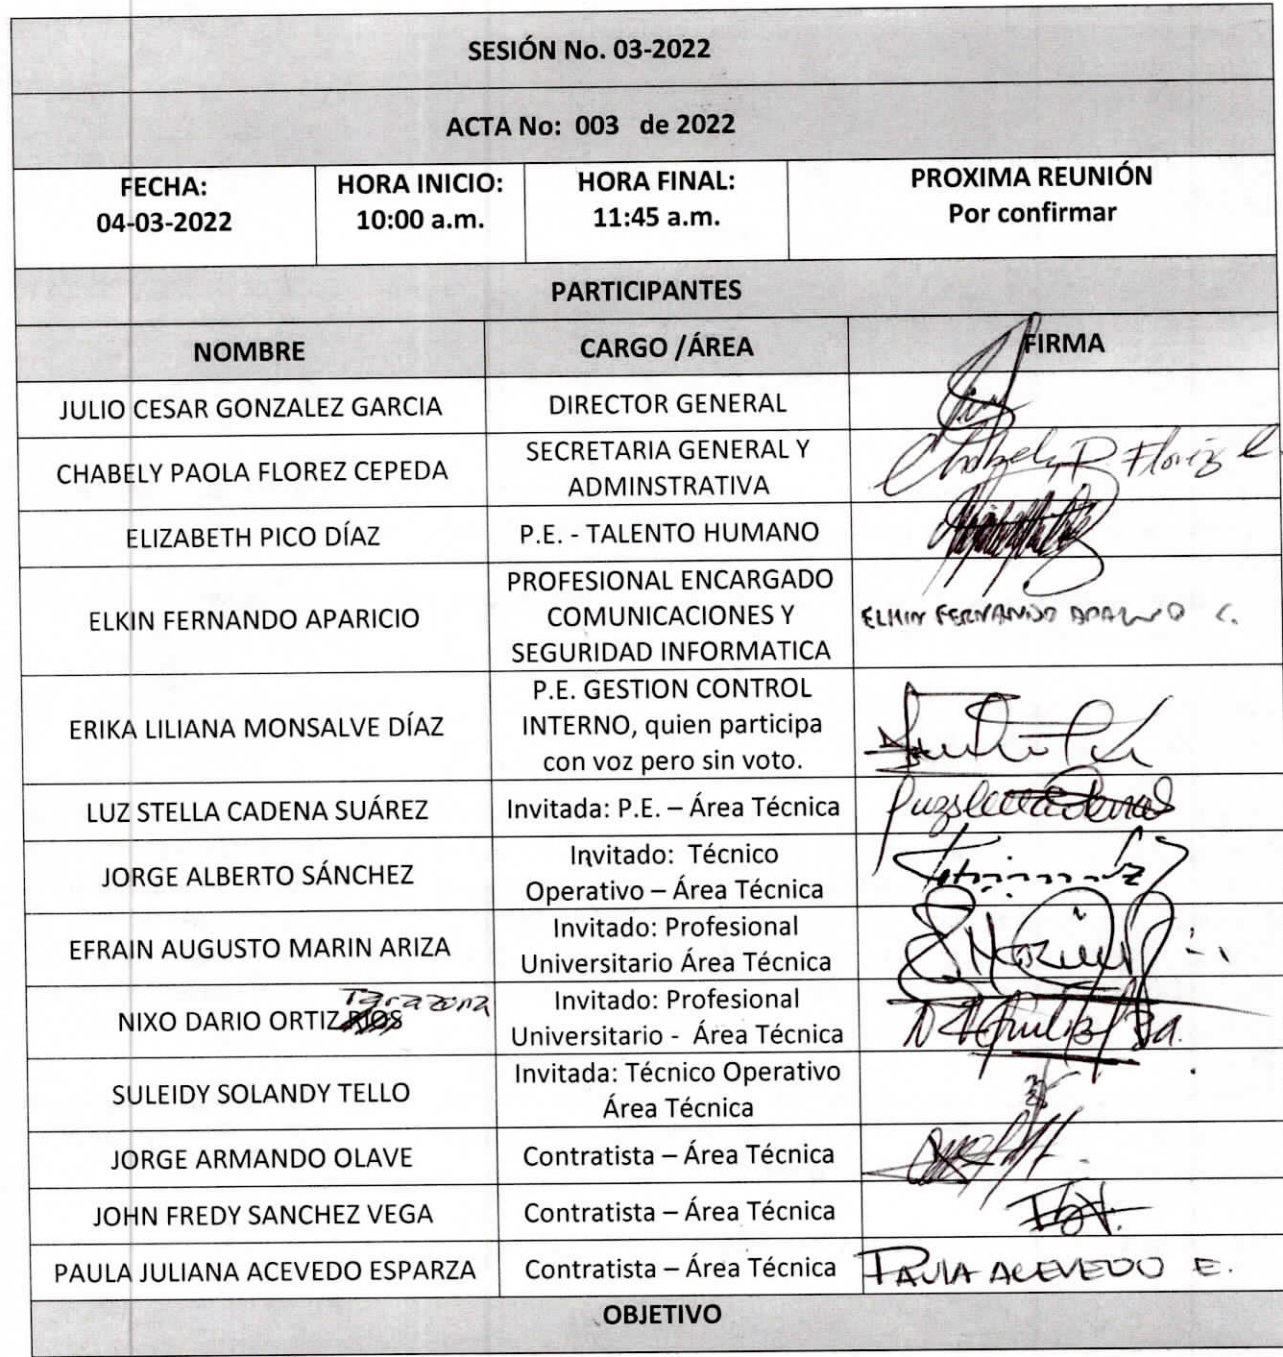 SESIÓN No. 03-2022
ACTA No: 003 de 2022
FECHA:
04-03-2022
HORA INICIO:
10:00 a.m.
HORA FINAL:
11:45 a.m.
PROXIMA REUNIÓN
Por confirmar
PARTICIPANTES
NOMBRE
CARGO /ÁREA
FIRMA
JULIO CESAR GONZALEZ GARCIA
DIRECTOR GENERAL
CHABELY PAOLA FLOREZ CEPEDA
SECRETARIA GENERAL Y
ADMINSTRATIVA
Chabely P. Florez C.
ELIZABETH PICO DÍAZ
P.E. - TALENTO HUMANO
ELKIN FERNANDO APARICIO
PROFESIONAL ENCARGADO
COMUNICACIONES Y
SEGURIDAD INFORMATICA
ELKIN FERNANDO APARICIO C.
ERIKA LILIANA MONSALVE DÍAZ
P.E. GESTION CONTROL
INTERNO, quien participa
con voz pero sin voto.
LUZ STELLA CADENA SUÁREZ
Invitada: P.E. – Área Técnica
JORGE ALBERTO SÁNCHEZ
Invitado: Técnico
Operativo – Área Técnica
EFRAIN AUGUSTO MARIN ARIZA
Invitado: Profesional
Universitario Área Técnica
NIXO DARIO ORTIZ RIOS Tarazona
Invitado: Profesional
Universitario - Área Técnica
SULEIDY SOLANDY TELLO
Invitada: Técnico Operativo
Área Técnica
JORGE ARMANDO OLAVE
Contratista – Área Técnica
JOHN FREDY SANCHEZ VEGA
Contratista – Área Técnica
PAULA JULIANA ACEVEDO ESPARZA
Contratista – Área Técnica
PAULA ACEVEDO E.
OBJETIVO